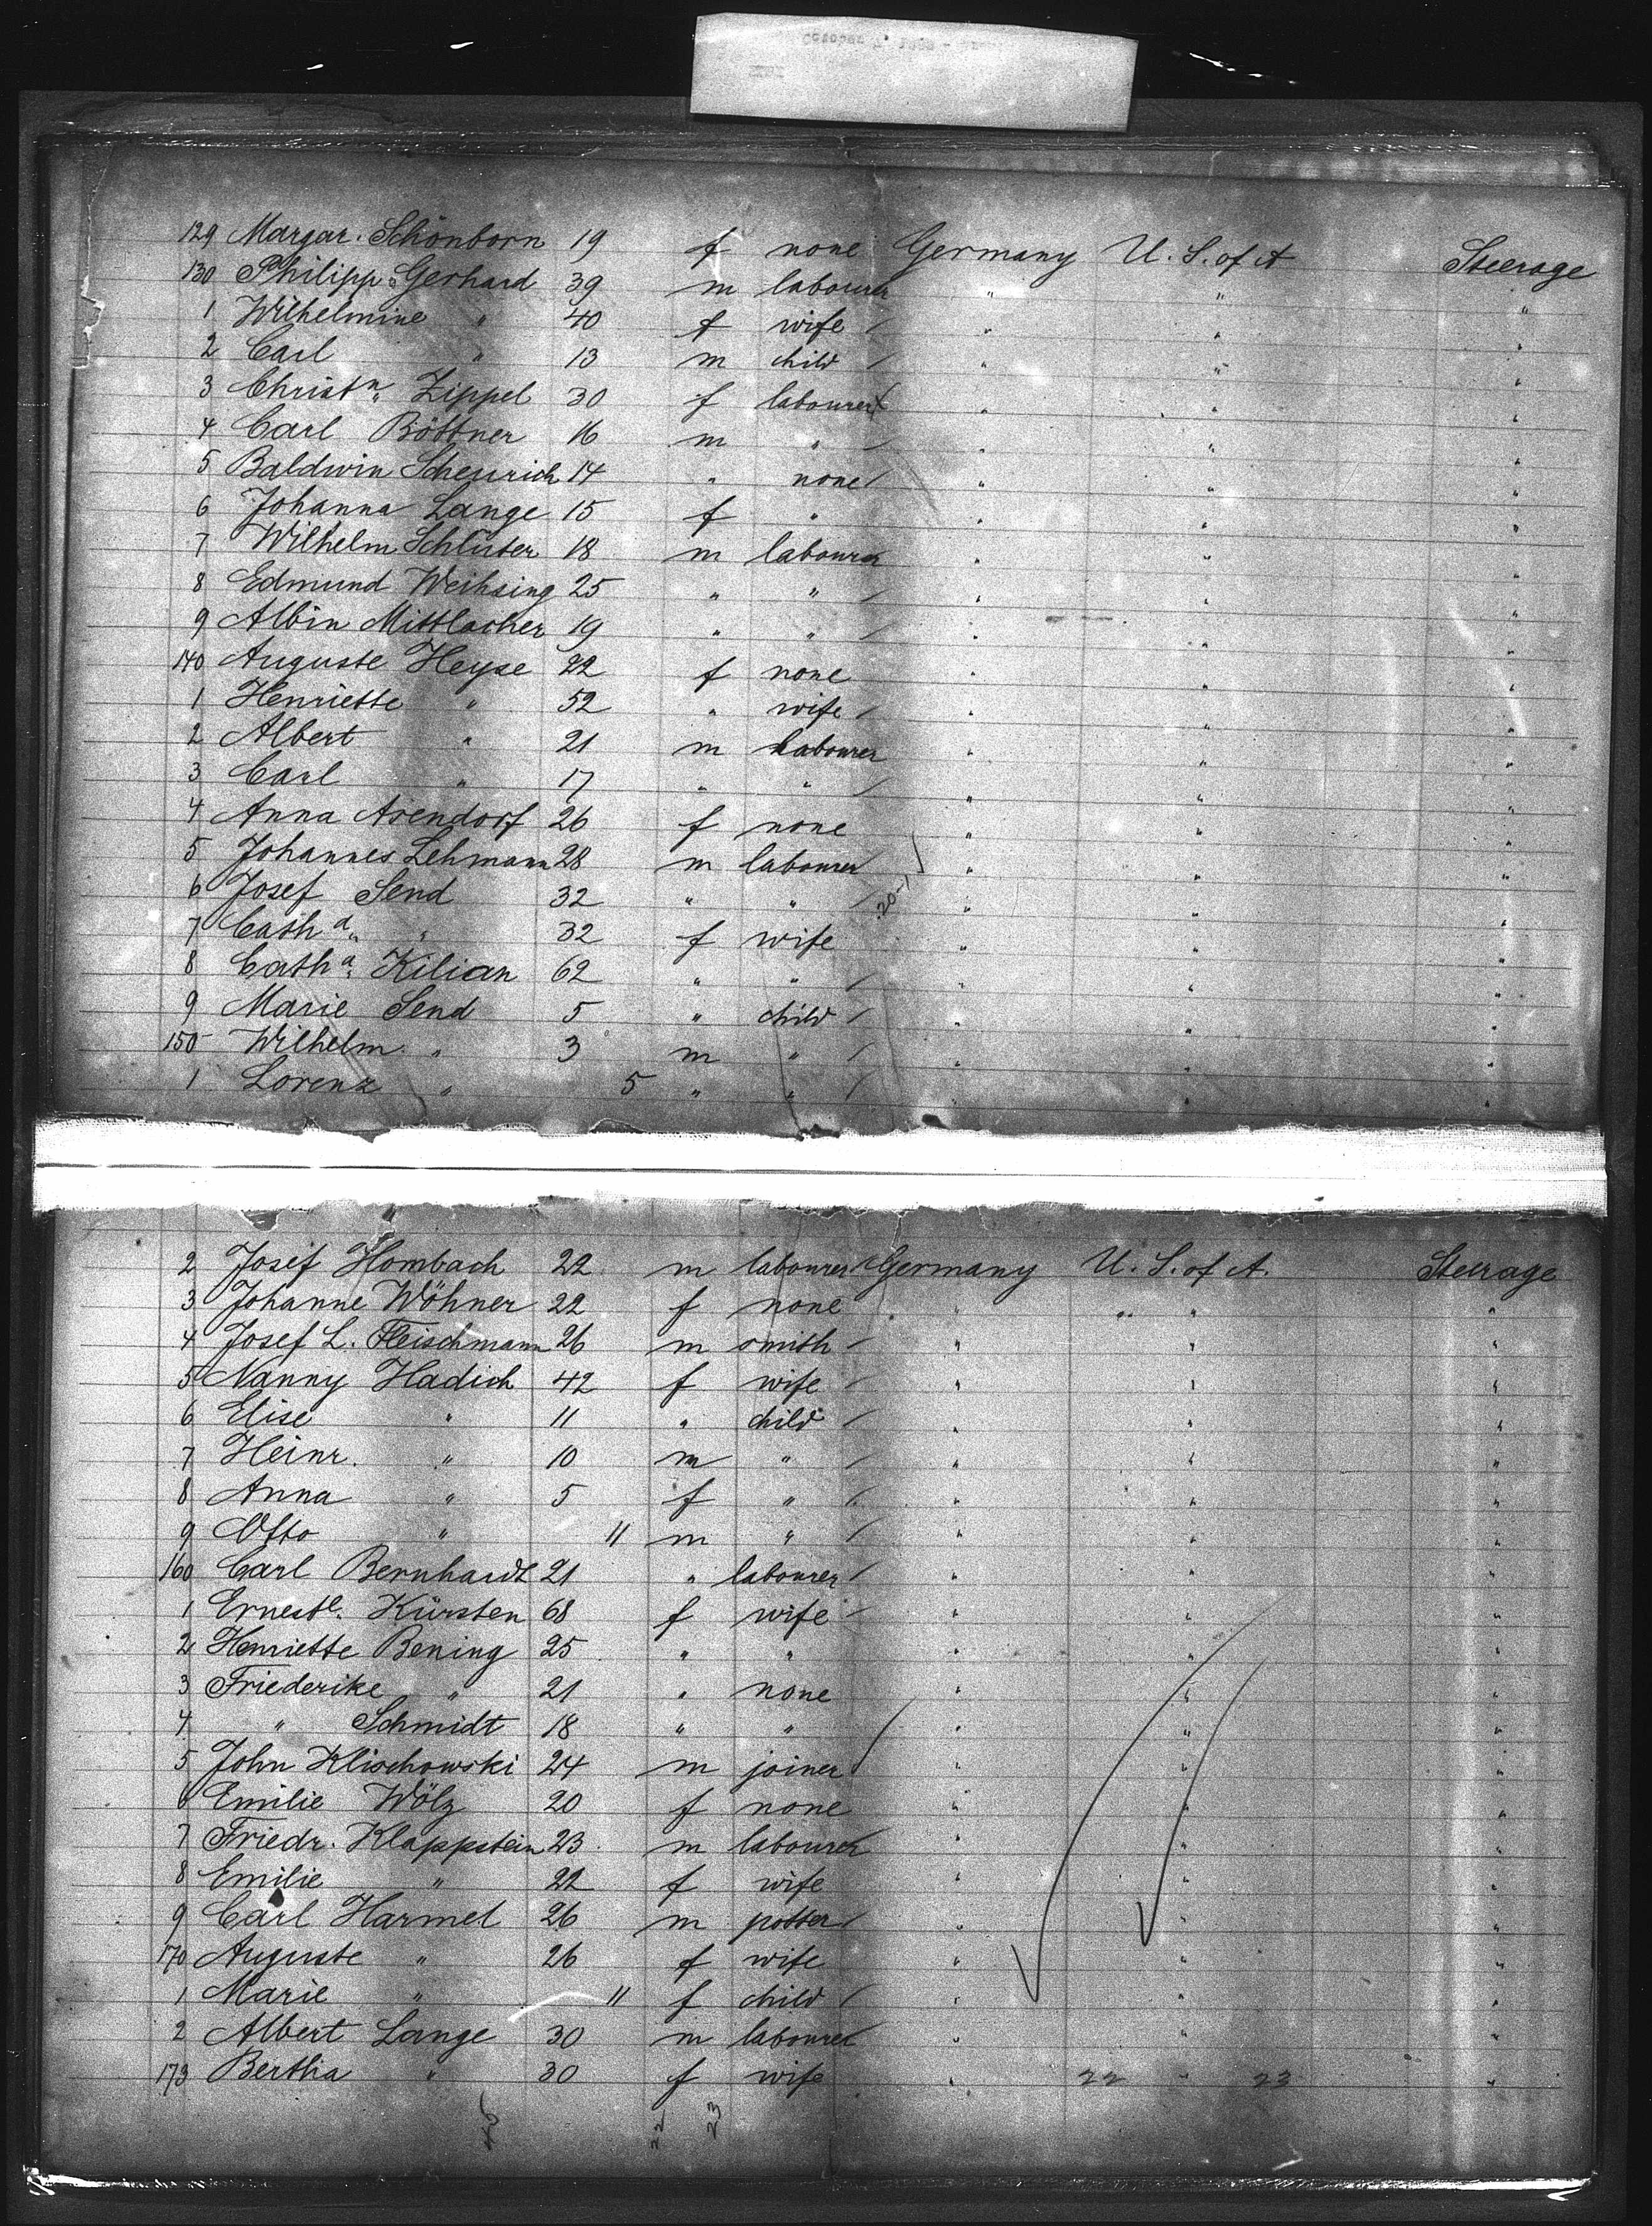 129 Margar. Schönborn 19 f none Germany U. S. of A Steerage
130 Philipp Gerhard 39 m labourer " " "
1 Wilhelmine " 40 f wife / " " "
2 Carl " 13 m child / " " "
3 Christn Zippel 30 f labourer " " "
4 Carl Böttner 16 m " / " " "
5 Baldwin Scheurich 14 " none / " " "
6 Johanna Lange 15 f " " " "
7 Wilhelm Schlüter 18 m labourer " " "
8 Edmund Weihsing 25 " " / " " "
9 Albin Mittlacher 19 " " / " " "
140 Auguste Heyse 22 f none " " "
1 Henriette " 52 " wife / " " "
2 Albert " 21 m labourer " " "
3 Carl " 17 " " / " " "
4 Anna Asendorf 26 f none " " "
5 Johannes Lehmann 28 m labourer " " "
6 Josef Send 32 " " / " " "
7 Catha " 32 f wife " " "
8 Catha Kilian 62 " " / " " "
9 Marie Send 5 " child / " " "
150 Wilhelm " 3 m " / " " "
1 Lorenz " 5 " " / " " "
2 Josef Hombach 22 m labourer Germany U. S. of A. Steerage
3 Johanne Wöhner 22 f none " " "
4 Josef L. Fleischmann 26 m smith / " " "
5 Nanny Hadich 42 f wife / " " "
6 Elise " 11 " child / " " "
7 Heinr. " 10 m " / " " "
8 Anna " 5 f " / " " "
9 Otto " 11 m " / " " "
160 Carl Bernhardt 21 " labourer / " " "
1 Ernestl. Kürsten 68 f wife / " " "
2 Henriette Bening 25 " " " " "
3 Friederike " 21 " none " " "
4 " Schmidt 18 " " / " " "
5 John Klischowski 24 m joiner " " "
6 Emilie Wölz 20 f none " " "
7 Friedr. Klappstein 23 m labourer " " "
8 Emilie " 22 f wife " " "
9 Carl Harmel 26 m potter / " " "
170 Auguste " 26 f wife " " "
1 Marie " 11 f child / " " "
2 Albert Lange 30 m labourer " " "
173 Bertha " 30 f wife " 22 " 23 "
22 23